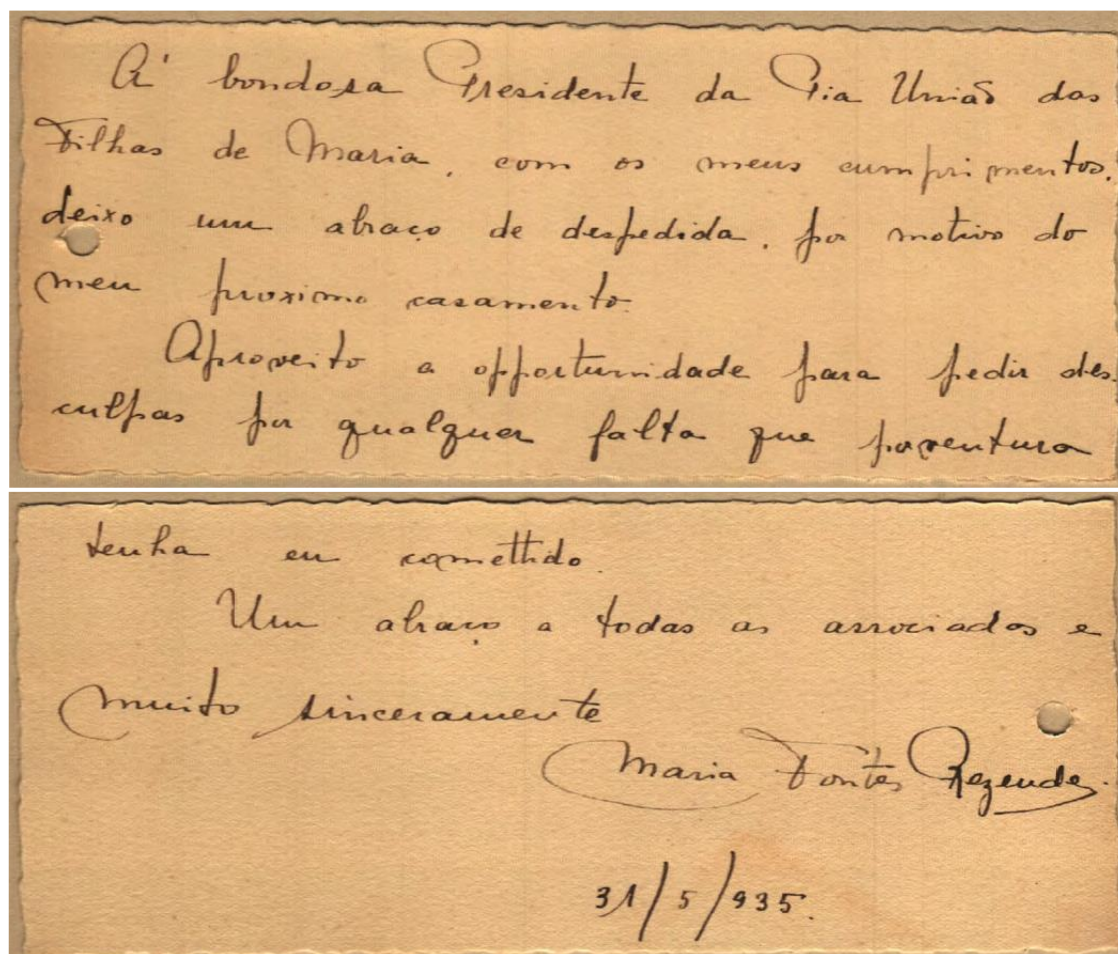 A' bondosa Presidente da Pia União das
Filhas de Maria, com os meus cumprimentos,
deixo um abraço de despedida, por motivo do
meu proximo casamento.
Aproveito a opportunidade para pedir des-
culpas por qualquer falta que porventura
tenha eu comettido.
Um abraço a todas as associadas e
muito sinceramente
Maria Fontes Rezende.
31/5/935.